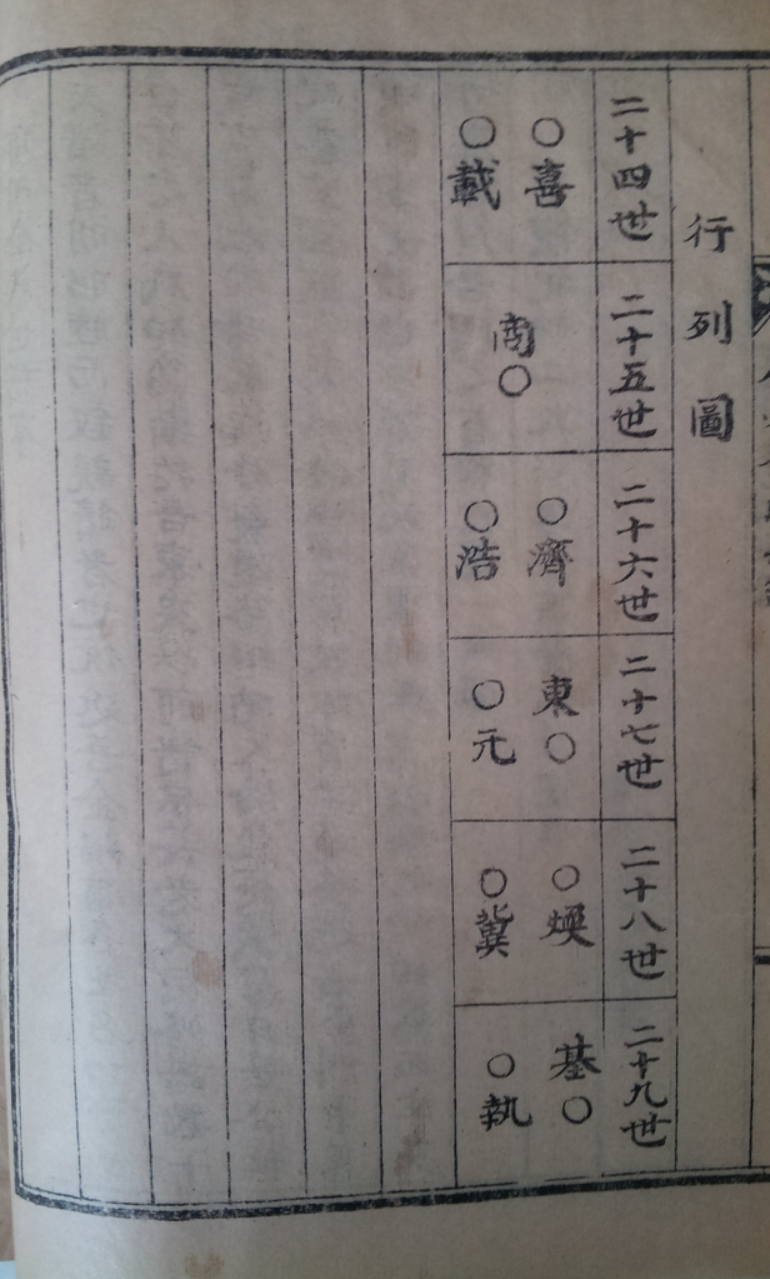 行列圖
二十四世
○喜
○載
二十五世
商○
二十六世
○濟
○浩
二十七世
東○
○元
二十八世
○煥
○冀
二十九世
基○
○執